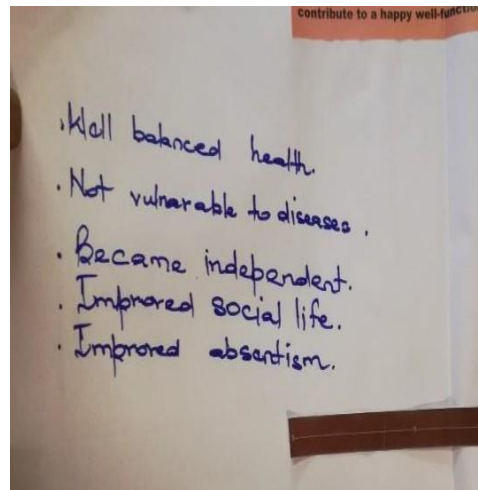 contribute to a happy well-functio
. Well balanced health.
. Not vulnarable to diseases .
. Became independent.
. Improved social life.
. Improved absentism.